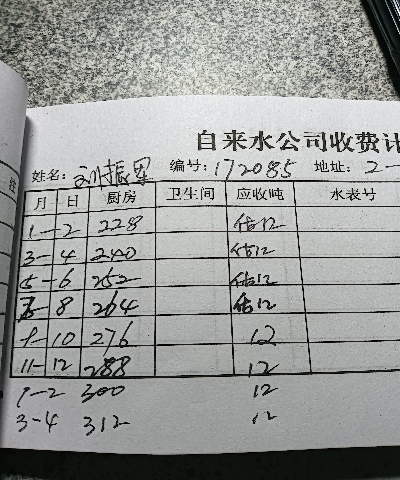 自来水公司收费计
姓名: 刘振军 编号: 172085 地址: 2-
月 日 厨房 卫生间 应收吨 水表号
1-2 228 估12
3-4 240 估12
5-6 252 估12
7-8 264 估12
9-10 276 12
11-12 288 12
1-2 300 12
3-4 312 12